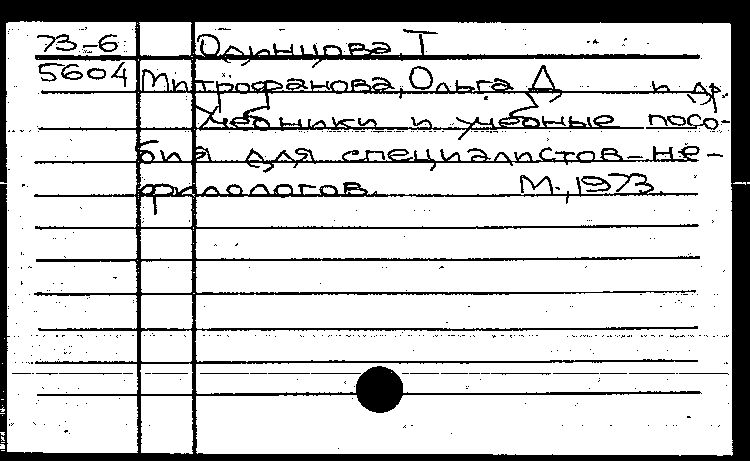 73-6 Одинцова, Т
5604 Митрофанова, Ольга Д и др.
Учебники и учебные посо-
бия для специалистов-не-
филологов. М., 1973.